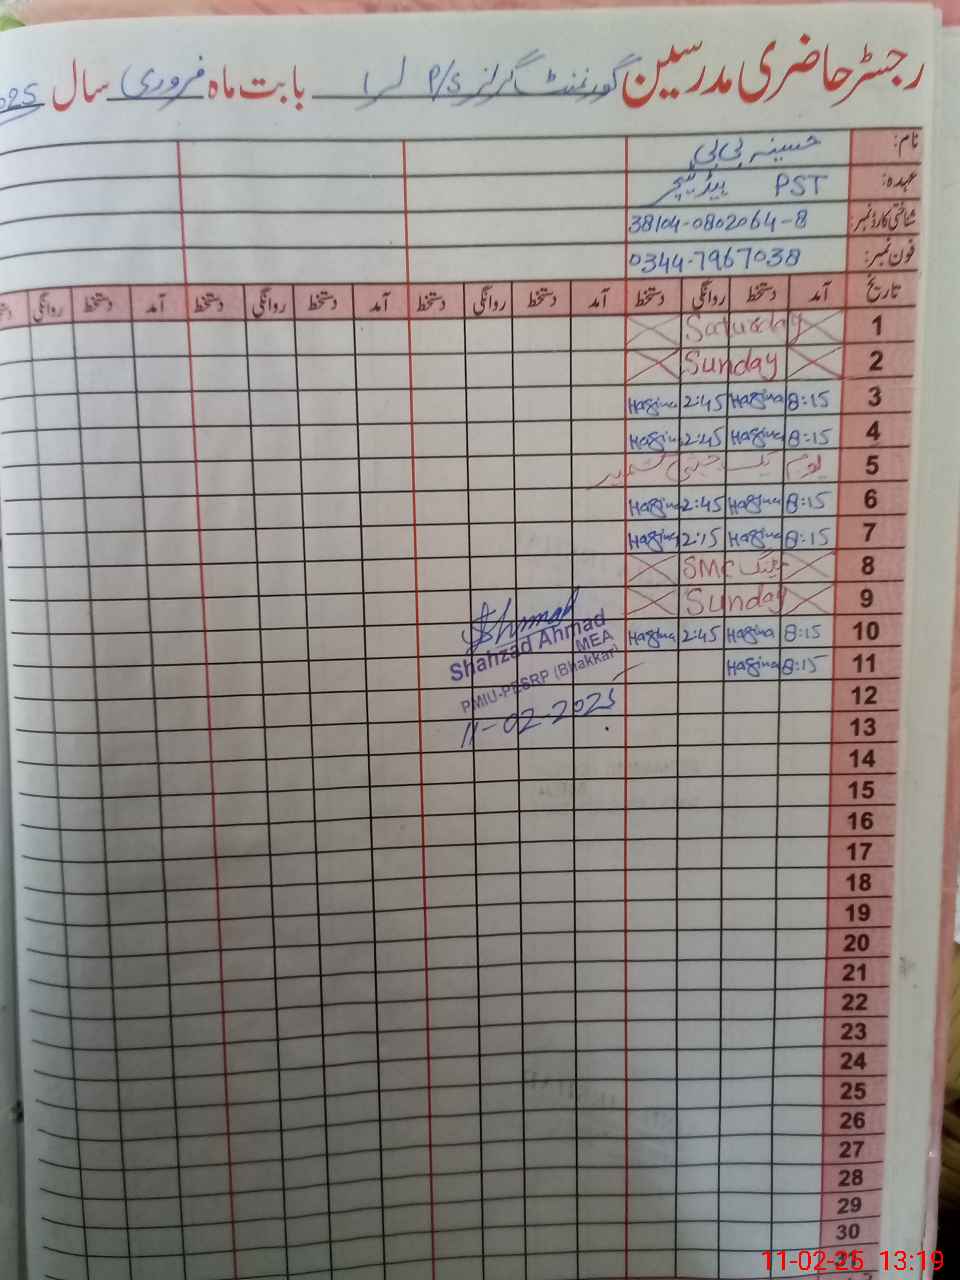 رجسٹر حاضری مدرسین گورنمنٹ گرلز P/S لسا بابت ماہ فروری سال 2025
نام: حسینہ بی بی
عہدہ: PST ہیڈ ٹیچر
شناختی کارڈ نمبر: 38104-0802064-8
فون نمبر: 0344-7967038
تاریخ آمد دستخط روانگی دستخط آمد دستخط روانگی دستخط آمد دستخط روانگی دستخط آمد دستخط روانگی
1 Saturday
2 Sunday
3 8:15 Hassina 2:45 Hassina
4 8:15 Hassina 2:45 Hassina
5 یوم یک جہتی کشمیر
6 8:15 Hassina 2:45 Hassina
7 8:15 Hassina 2:15 Hassina
8 SMC میٹنگ
9 Sunday
10 8:15 Hassina 2:45 Hassina
11 8:15 Hassina
Shahzad Ahmad
MEA
PMIU-PESRP (Bhakkar)
11-02-2025
12
13
14
15
16
17
18
19
20
21
22
23
24
25
26
27
28
29
30
31
11-02-25 13:19